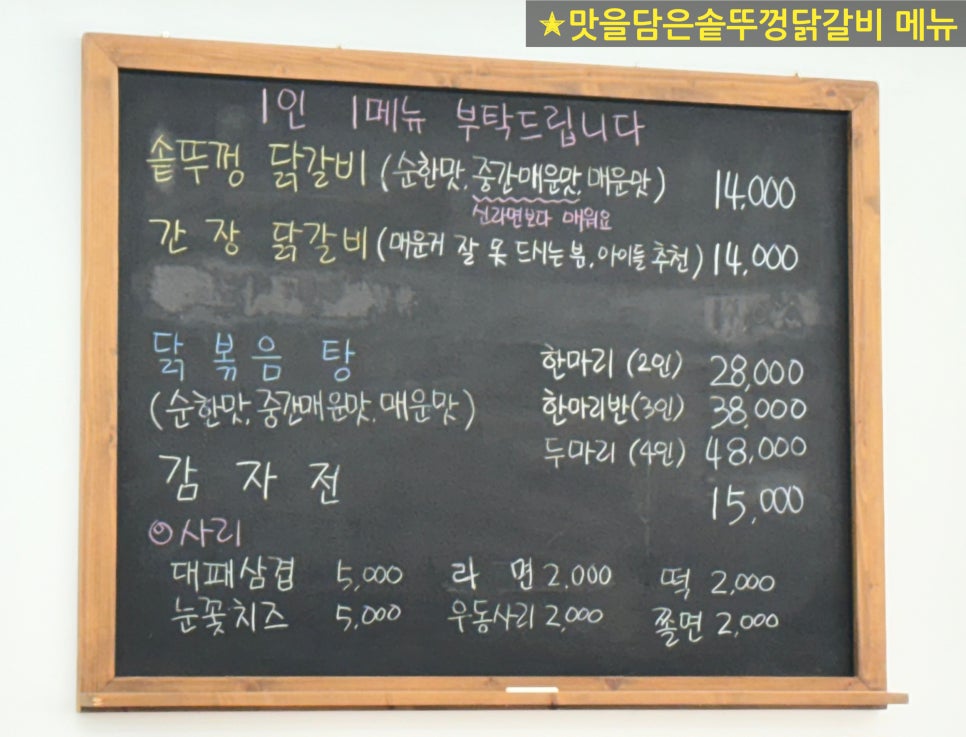 ★맛을담은솥뚜껑닭갈비 메뉴
1인 1메뉴 부탁드립니다
솥뚜껑 닭갈비 (순한맛, 중간매운맛, 매운맛) 14,000
신라면보다 매워요
간장 닭갈비 (매운거 잘 못 드시는 분, 아이들 추천) 14,000
닭볶음탕 한마리 (2인) 28,000
(순한맛, 중간매운맛, 매운맛) 한마리반(3인) 38,000
두마리 (4인) 48,000
감자전 15,000
◎사리
대패삼겹 5,000 라면 2,000 떡 2,000
눈꽃치즈 5,000 우동사리 2,000 쫄면 2,000